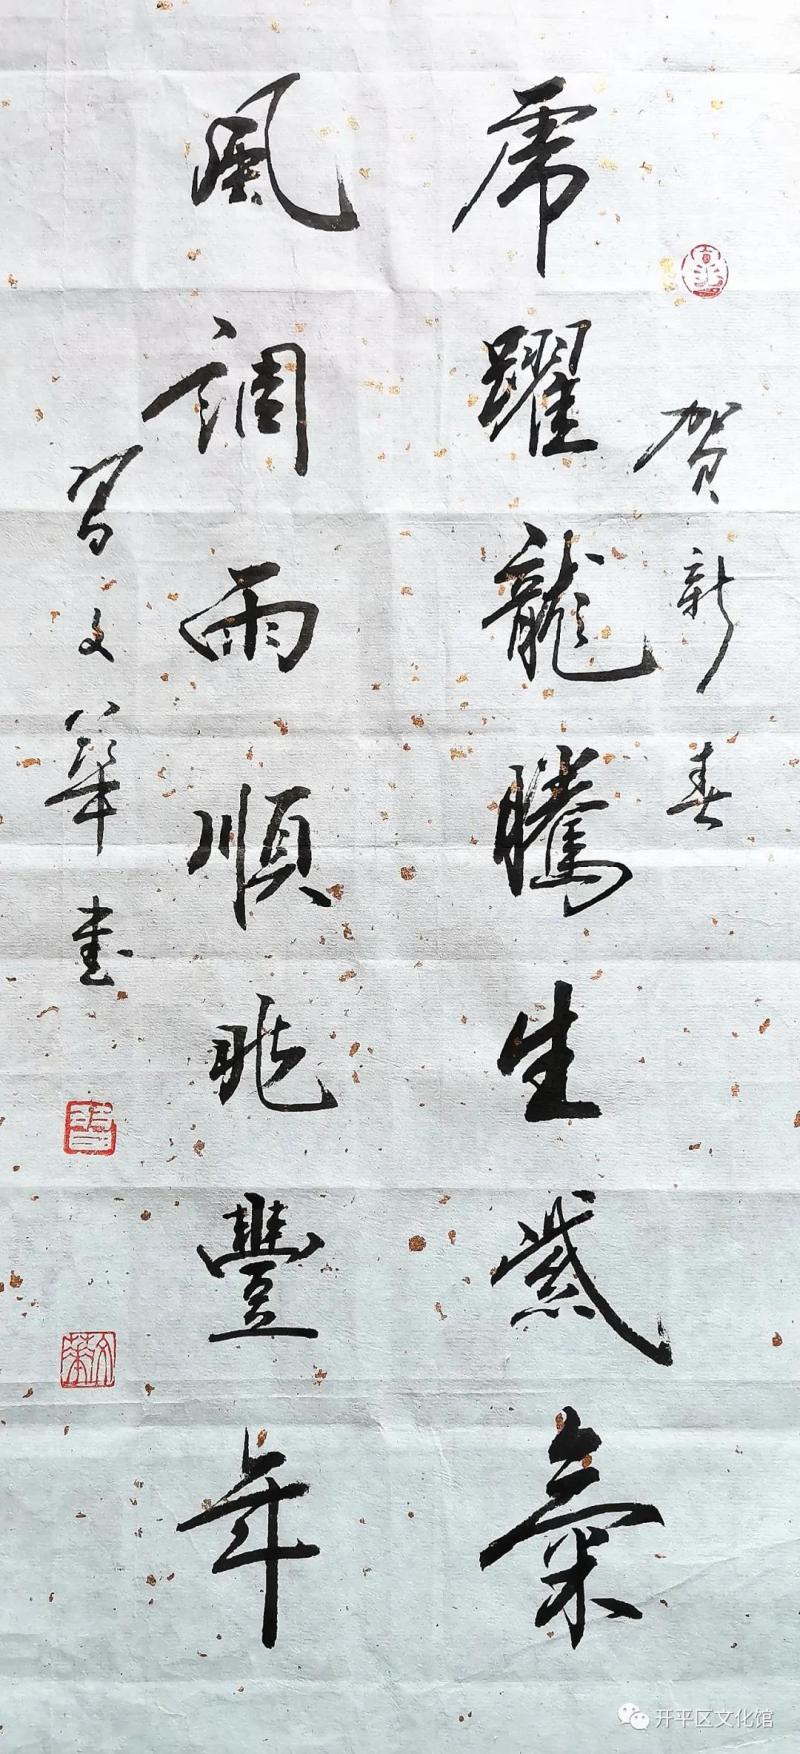 贺新春
虎躍龍騰生紫氣
風調雨順兆豐年
習文華書
文華
开平区文化馆